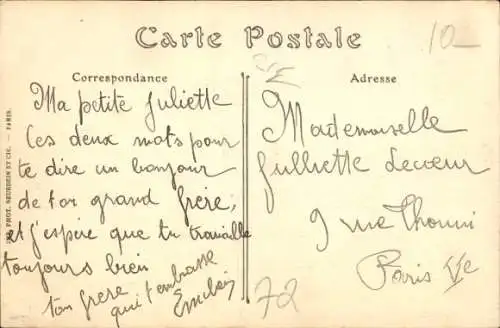 Carte Postale
10
Correspondance
Adresse
Ma petite Juliette
Ces deux mots pour
te dire un bonjour
de ton grand frère,
et j'espère que tu travaille
toujours bien
ton frere
qui t'embrasse
Mademoiselle
Julliette Lecoeur
9 rue Thouin
Paris Ve
72
PHOT. NEURDEIN ET CIE. — PARIS.